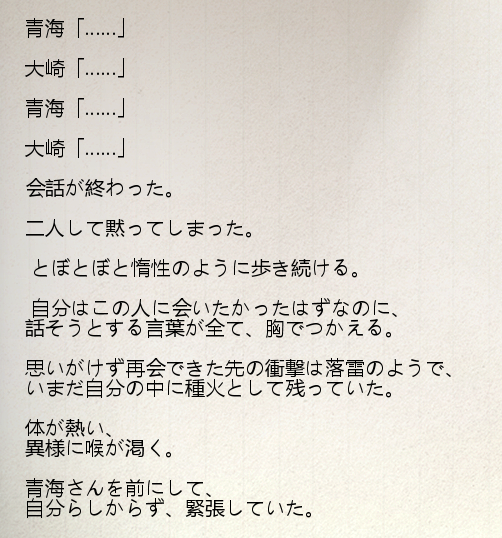 青海「……」
大崎「……」
青海「……」
大崎「……」
会話が終わった。
二人して黙ってしまった。
とぼとぼと惰性のように歩き続ける。
自分はこの人に会いたかったはずなのに、
話そうとする言葉が全て、胸でつかえる。
思いがけず再会できた先の衝撃は落雷のようで、
いまだ自分の中に種火として残っていた。
体が熱い、
異様に喉が渇く。
青海さんを前にして、
自分らしからず、緊張していた。